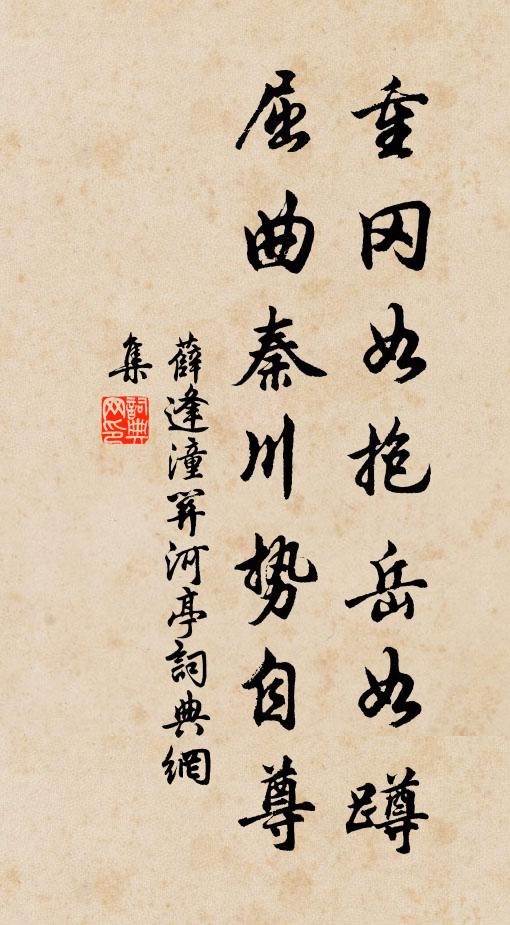 重冈如抱岳如蹲
屈曲秦川势自尊
薛逢潼关河亭詞典網
集
詞典网印